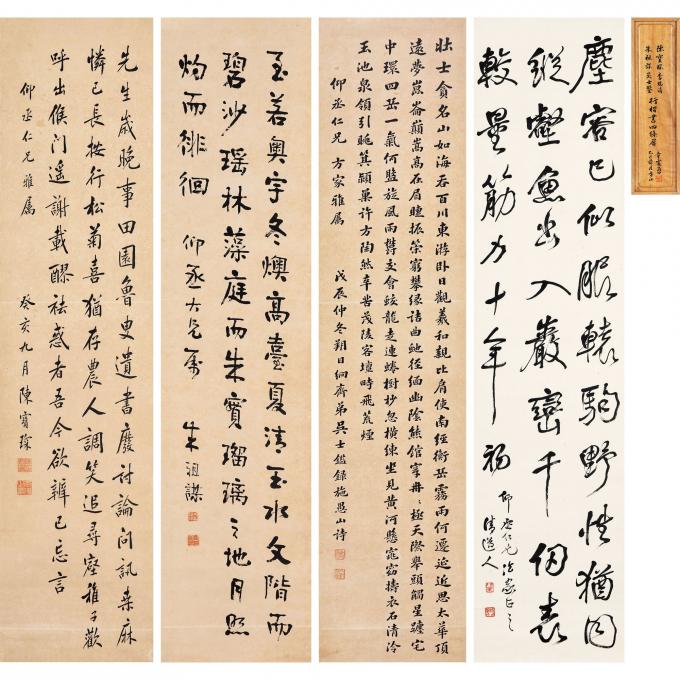 陳寶琛 李瑞清
朱祖謀 吳士鑑
行楷書四條屏
塵容已似服轅駒野性猶同
縱壑魚出入巖巒千仞表
較量筋力十年初
仰丞仁兄法家正之
清道人
壯士貪名山如海吞百川東游卧日觀羲和親比肩使南經衡岳霧雨何邅延近思太華頂
遠夢崑崙顛嵩高在眉睫振策窮攀緣詰曲虵徑緬幽陰熊館穿冉冉極天際舉頭觸星躔宅
中環四岳一氣何盤旋風雨鬱交會蛟龍走連蜷樹杪忽橫練坐見黃河懸窺窈擣衣石清泠
玉池泉領引眺箕潁巢許方陶然辛苦茂陵客壇時飛荒煙
仰丞仁兄方家雅屬 戊辰仲冬朔日絅齋弟吳士鑑錄施愚山詩
至若奧宇冬燠高臺夏清玉水文階而
碧沙瑤林藻庭而朱實瑠璃之地月照
灼而徘徊 仰丞大兄屬 朱祖謀
先生歲晚事田園魯叟遺書廢討論問訊桑麻
憐已長按行松菊喜猶存農人調笑追尋壑稚子歡
呼出候門遥謝載醪祛惑者吾今欲辨已忘言
仰丞仁兄雅屬 癸亥九月陳寶琛